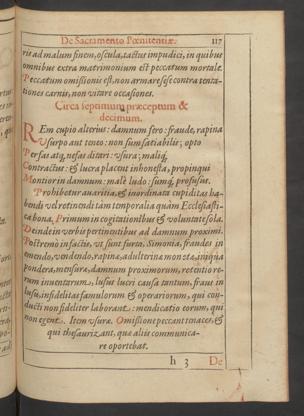 De Sacramento Pœnitentiæ. 117
rie ad malum finem, oscula, tactus impudici, in quibus
omnibus extra matrimonium est peccatum mortale.
Peccatum omissionis est, non armare sese contra tenta-
tiones carnis, non vitare occasiones.
Circa septimum præceptum &
decimum.
REm cupio alterius: damnum fero: fraude, rapina
Usurpo aut teneo: non sum satiabilis; opto
Persæ atq; nefas ditari: usura; maliq;
Contractus: & lucra placent inhonesta, propinqui
Mentior in damnum: malè ludo: sumq; profusus.
Prohibetur avaritia, & inordinata cupiditas ha-
bendi vel retinendi tàm temporalia quàm Ecclesiasti-
ca bona. Primum in cogitationibus & voluntate sola.
Deinde in verbis pertinentibus ad damnum proximi.
Postremò in factis, ut sunt furta, Simonia, fraudes in
emendo, vendendo, rapinæ, adulterina moneta, iniqua
pondera, mensura, damnum proximorum, retentio re-
rum inventarum, lusus lucri causa tantùm, fraus in
lusu, infidelitas famulorum & operariorum, qui con-
ducti non fideliter laborant: mendicatio eorum, qui
non egent. Item usuræ. Omissione peccant tenaces, &
qui thesaurizant, quæ aliis communica-
re oportebat.
h 3 De